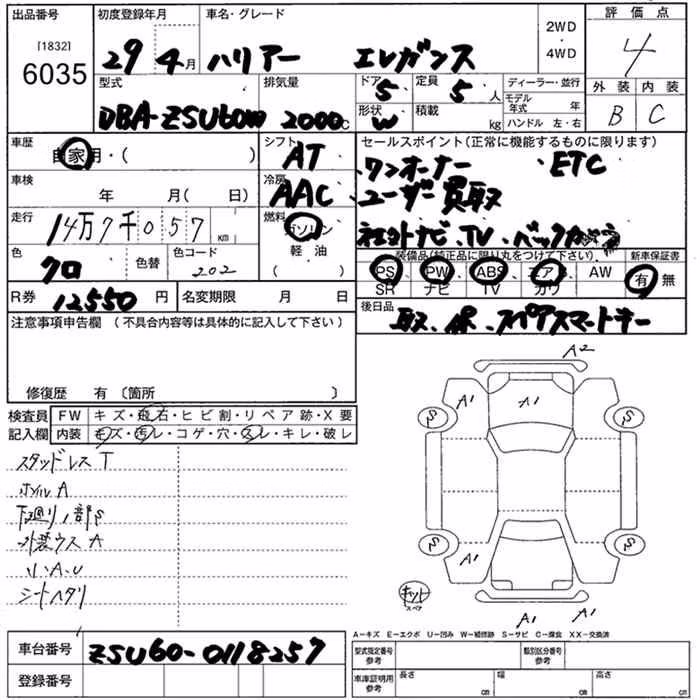 出品番号 初度登録年月 車名・グレード 評価点
[1832] 2WD
6035 29 4月 ハリアー エレガンス ・4WD 4
型式 排気量 ドア 定員 ディーラー・並行 外装 内装
5 5人 モデル年式 年
DBA-ZSU60W 2000c 形状 W 積載 kg ハンドル 左・右 B C
車歴 シフト セールスポイント(正常に機能するものに限ります)
自家用・( ) AT ワンオーナー ETC
車検 冷房 ユーザー買取
年 月(日) AAC
走行 14万7千057km 燃料 社外ナビ、TV、バックカメラ
ガソリン 装備品(純正品に限り丸をつけて下さい) 新車保証書
色 クロ 色替 色コード 202 軽油 PS PW ABS エアB AW 有・無
( ) SR ナビ TV カワ
R券 12550円 名変期限 月 日 後日品
取、保、スペアスマートキー
注意事項申告欄 (不具合内容等は具体的に記入して下さい)
修復歴 有 〔箇所 〕
検査員 FW キズ・飛石・ヒビ割・リペア跡・X要
記入欄 内装 キズ・汚レ・コゲ・穴・スレ・キレ・破レ
A2
A1 A1
S S
スタッドレスT
ホイルA
下廻り一部S
外装ウスA
小A.U
シートヘタリ
S S
A1
キット
スペア
A1 A1
A-キズ E-エクボ U-凹み W-補修跡 S-サビ C-腐食 XX-交換済
車台番号 ZSU60-0118257 型式指定番号 参考 類別区分番号 参考
登録番号 車庫証明用 参考 長さ cm 幅 cm 高さ cm